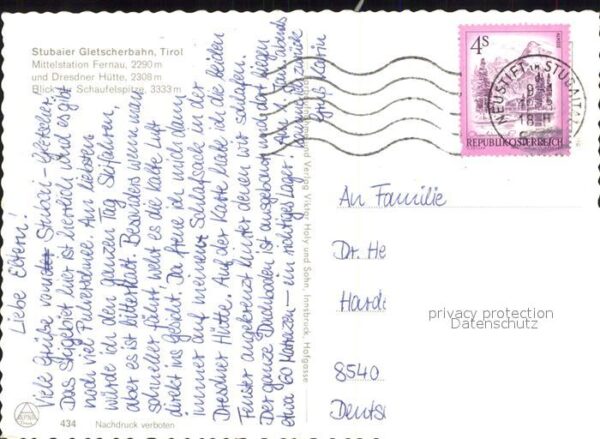 Stubaier Gletscherbahn, Tirol
Mittelstation Fernau, 2290 m
und Dresdner Hütte, 2308 m
Blick zur Schaufelspitze, 3333 m
Liebe Eltern!
Viele Grüße vom Stubai-Gletscher.
Das Skigebiet hier ist herrlich, und es gibt
noch viel Pulverschnee. Am liebsten
würde ich den ganzen Tag Skifahren,
aber es ist bitterkalt. Besonders wenn man
schneller fährt, weht es die kalte Luft
direkt ins Gesicht. Da freue ich mich dann
immer auf meinen Schlafsack in der
Dresdner Hütte. Auf der Karte habe ich die beiden
Fenster angekreuzt hinter denen wir schlafen.
Der ganze Dachboden ist ausgebaut und dort liegen
etwa 60 Matrazen – ein richtiges Lager!
Gruß Katrin
Verlag Viktor Holy und Sohn, Innsbruck, Hofgasse
434
Nachdruck verboten
4S
REPUBLIK ÖSTERREICH
NEUSTIFT IM STUBAITAL
18
An Familie
Dr. He
Hard
8540
Deuts
privacy protection
Datenschutz